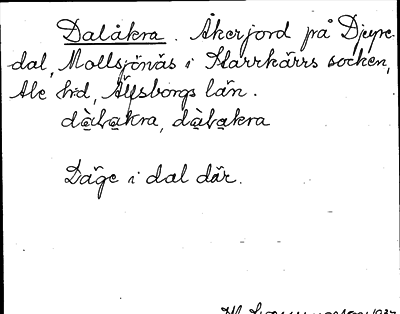 Dalåkra. Åkerjord på Djupe-
dal, Mollsjönäs i Starrkärrs socken,
Ale hd, Älvsborgs län.
dàlakra, dàlakra
Läge i dal där.